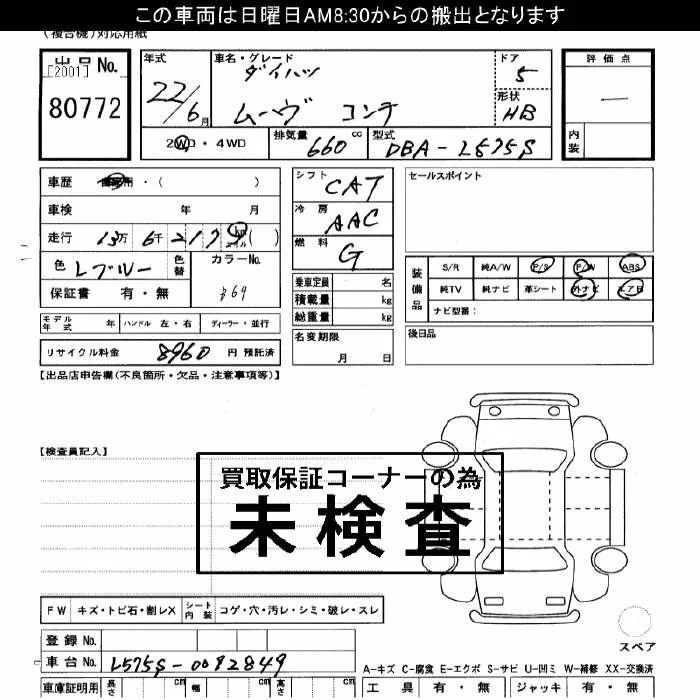 この車両は日曜日AM8:30からの搬出となります
(複合機)対応用紙
出品 No.
[2001]
80772
年式
22/6月
車名・グレード
ダイハツ
ムーヴ コンテ
ドア
5
形状
HB
評価点
—
内装
2WD・4WD
排気量
660 cc
型式
DBA-L575S
車歴 ・( )
車検 年 月
走行 13万 6千 217 km マイル ( )
色 Lブルー 色替
カラーNo.
保証書 有・無
シフト CAT
冷房 AAC
燃料 G
セールスポイント
乗車定員 名
積載量 kg
総重量 kg
装備品
S/R 純A/W P/S P/W ABS
純TV 純ナビ 革シート 外ナビ エアB
ナビ型番:
モデル年式 年 ハンドル 左・右 ディーラー・並行
名変期限
月 日
後日品
リサイクル料金 8960 円 預託済
【出品店申告欄(不良箇所・欠品・注意事項等)】
【検査員記入】
買取保証コーナーの為
未検査
FW キズ・トビ石・割レX シート内装 コゲ・穴・汚レ・シミ・破レ・スレ
スペア
登録 No.
車台 No. L575S-0082849
A-キズ C-腐食 E-エクボ S-サビ U-凹ミ W-補修 XX-交換済
車庫証明用 長さ cm 幅 cm 高さ cm
工具 有・無 ジャッキ 有・無